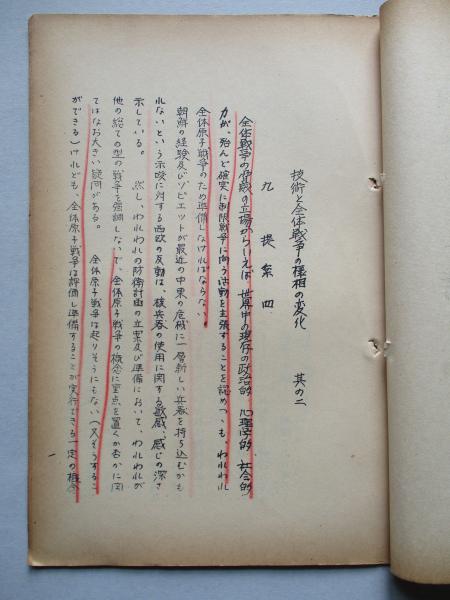 技術と全体戦争の様相の変化　其の二
九　提案四
全体戦争の脅威の立場からいえば、世界中の現存の政治的　心理学的　社会的
力が、殆んど確実に制限戦争に向う活動を主張することを認めつゝも、われわれ
全体原子戦争のため準備しなければならない
朝鮮の経験及びソビエットが最近の中東の危機に一層新しい兵器を持ち込むかも
れないという示唆に対する西欧の反動は、核兵器の使用に関する敏感、感じの深さ
示している。　然し、われわれの防衛計画の立案及び準備において、われわれが
他の総ての型の戦争を強調しないで、全体原子戦争の概念に重点を置くか否かに関
てはなお大きい疑問がある。　全体原子戦争は起りそうにもない（又そうするこ
ができる）けれども、全体原子戦争は評価し準備することが実行できる一定の概念